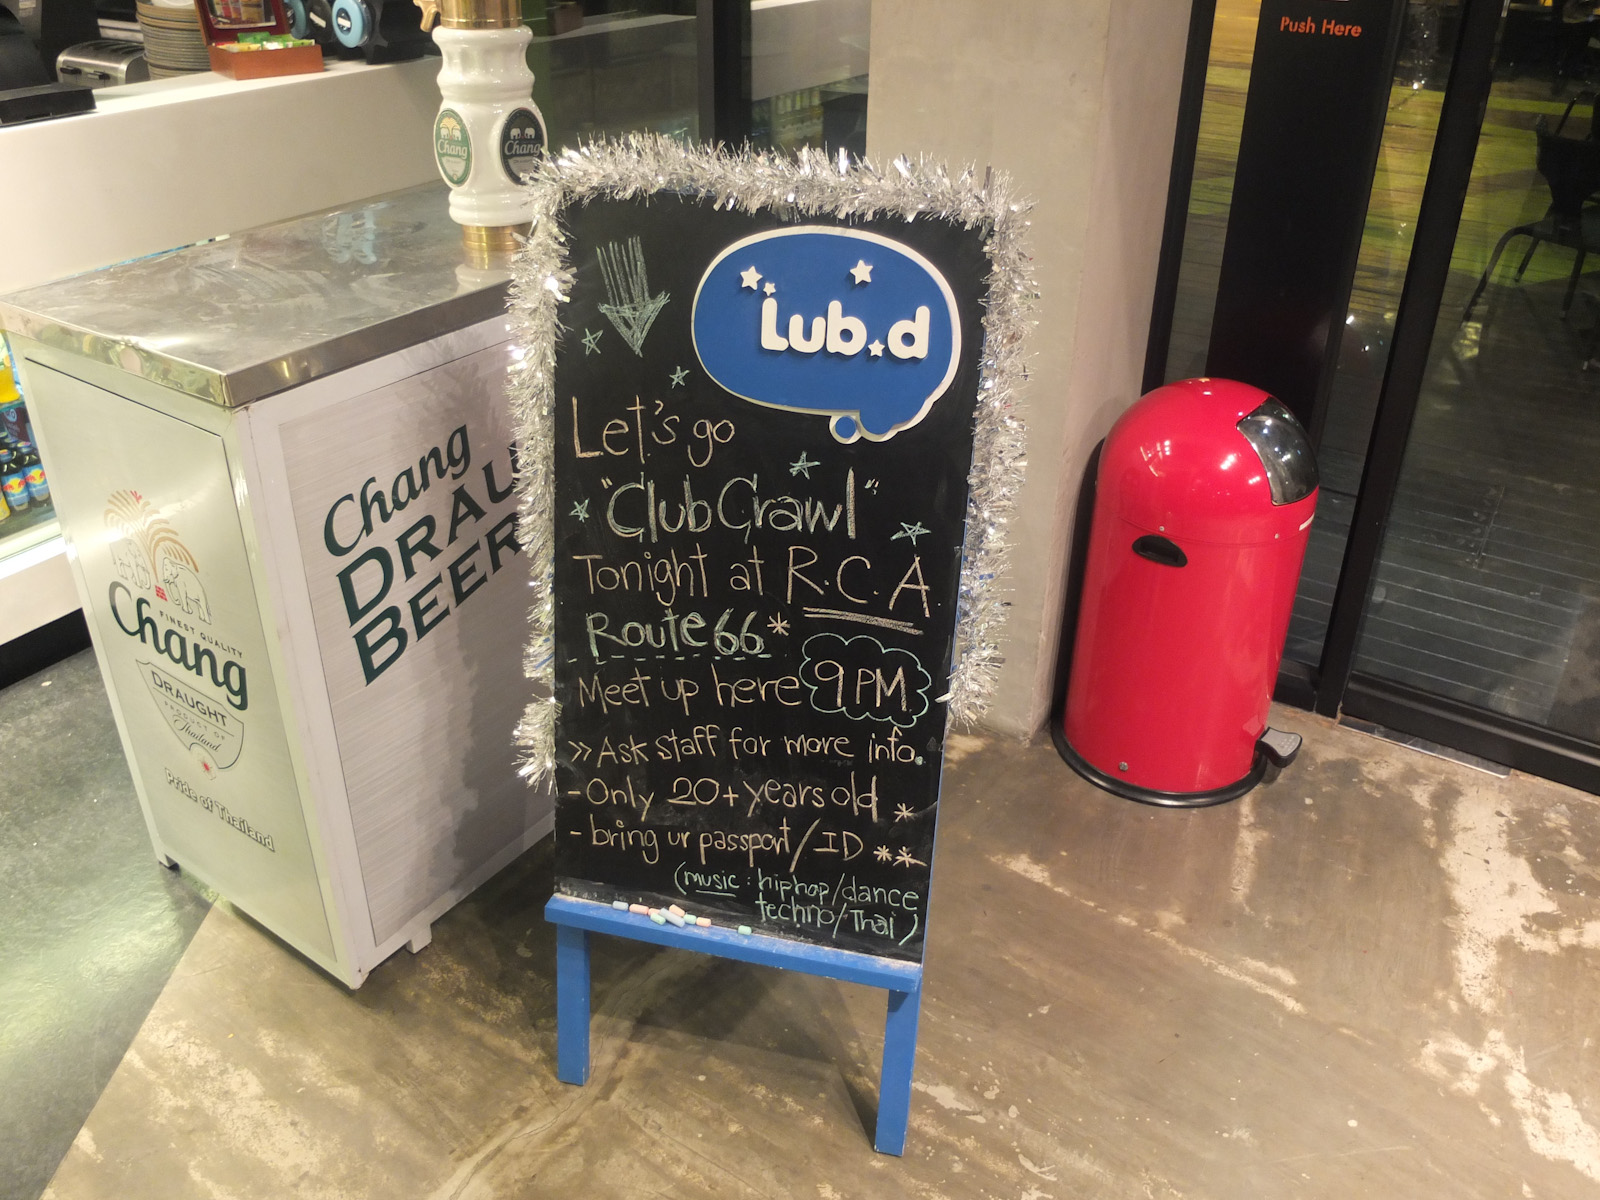 Push Here
Chang
Chang
Lub.d
Let's go
"Club Crawl"
Tonight at R.C.A.
Route 66*
Meet up here 9 PM
» Ask staff for more info.
- Only 20+ years old *
- bring ur passport/ID **
(music: hiphop/dance
techno/Thai)
Chang
DRAU
BEER
FINEST QUALITY
Chang
DRAUGHT
PRODUCT OF
Thailand
Pride of Thailand